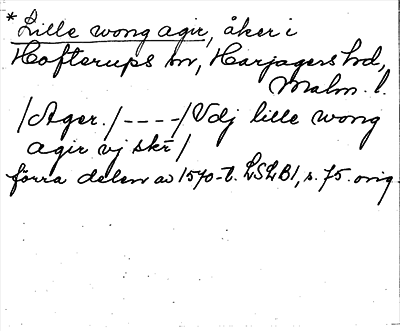 *Lille wong agir, åker i
Hofterups sn, Harjagers hd,
Malm. l.
/Ager./----/Vdj lille wong
agir vj skr/
förra delen av 1570-t. LSLB1, s. 75. orig.